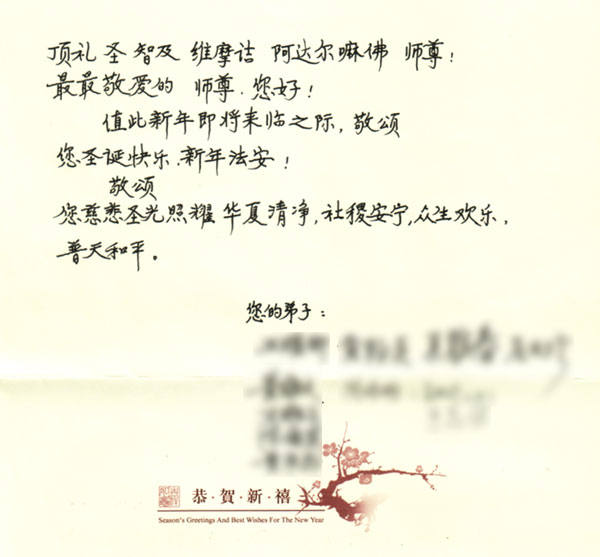 顶礼 圣 智及 维摩诘 阿达尔嘛佛 师尊！
最最敬爱的 师尊．您好！
值此新年即将来临之际，敬颂
您圣诞快乐、新年法安！
敬颂
您慈悲圣光照耀 华夏清净，社稷安宁，众生欢乐，
普天和平。
您的弟子：
恭·贺·新·禧
Season's Greetings And Best Wishes For The New Year